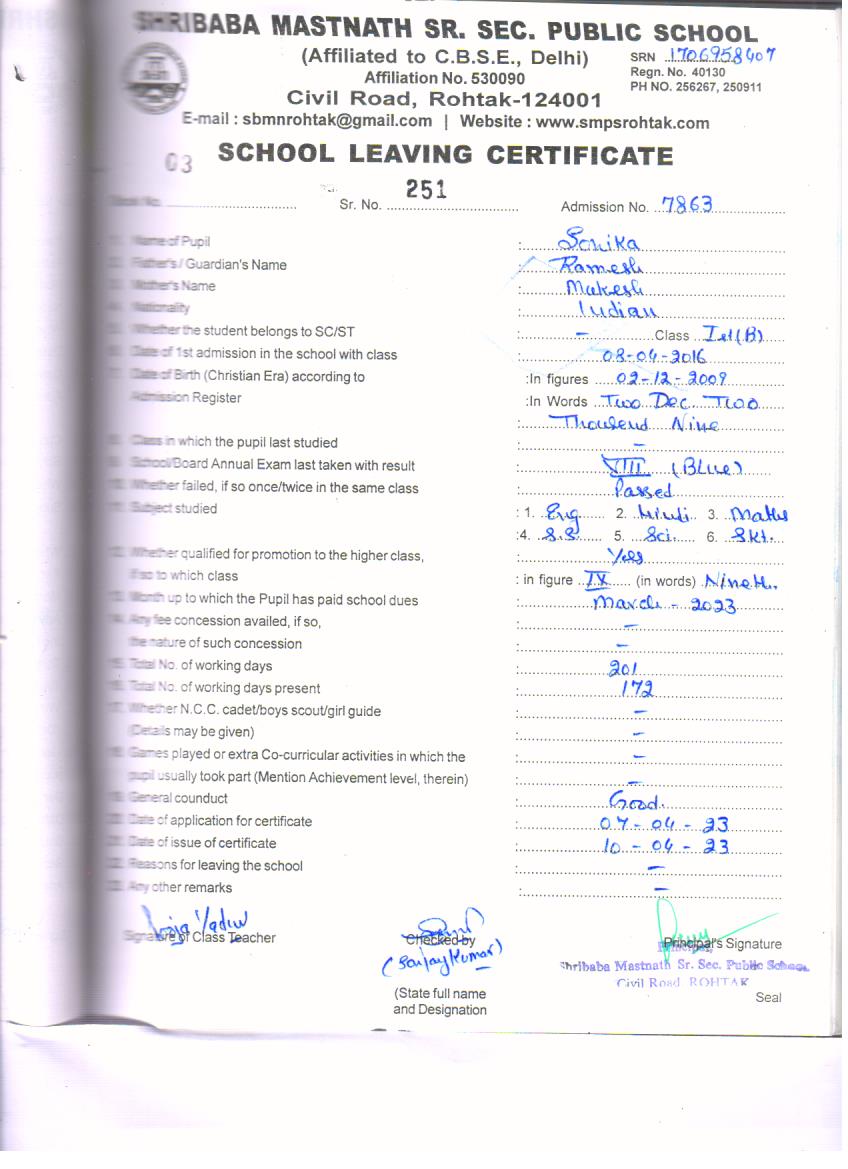 SHRIBABA MASTNATH SR. SEC. PUBLIC SCHOOL
(Affiliated to C.B.S.E., Delhi)
SRN 1706958407
Affiliation No. 530090
Regn. No. 40130
Civil Road, Rohtak-124001
PH NO. 256267, 250911
E-mail : sbmnrohtak@gmail.com | Website : www.smpsrohtak.com
03 SCHOOL LEAVING CERTIFICATE
Book No. Sr. No. 251 Admission No. 7863
1. Name of Pupil : Sonika
2. Father's / Guardian's Name : Ramesh
3. Mother's Name : Mukesh
4. Nationality : Indian
5. Whether the student belongs to SC/ST : – Class Ist(B)
6. Date of 1st admission in the school with class : 08-04-2016
7. Date of Birth (Christian Era) according to :In figures 02-12-2009
Admission Register :In Words Two Dec Two
: Thousend Nine
8. Class in which the pupil last studied : –
9. School/Board Annual Exam last taken with result : VIII (Blue)
10. Whether failed, if so once/twice in the same class : Passed
11. Subject studied : 1. Eng 2. Hindi 3. Maths
:4. S.S 5. Sci. 6. Skt.
12. Whether qualified for promotion to the higher class, : Yes
if so to which class : in figure IX (in words) Nineth.
13. Month up to which the Pupil has paid school dues : March - 2023
14. Any fee concession availed, if so, : –
the nature of such concession : –
15. Total No. of working days : 201
16. Total No. of working days present : 172
17. Whether N.C.C. cadet/boys scout/girl guide : –
(Details may be given) : –
18. Games played or extra Co-curricular activities in which the : –
pupil usually took part (Mention Achievement level, therein) : –
19. General counduct : Good.
20. Date of application for certificate : 07-04-23
21. Date of issue of certificate : 10-04-23
22. Reasons for leaving the school : –
23. Any other remarks : –
Signature of Class Teacher Checked by Principal's Signature
(Sanjay Kumar)
Principal,
Shribaba Mastnath Sr. Sec. Public School
Civil Road ROHTAK
(State full name
and Designation
Seal